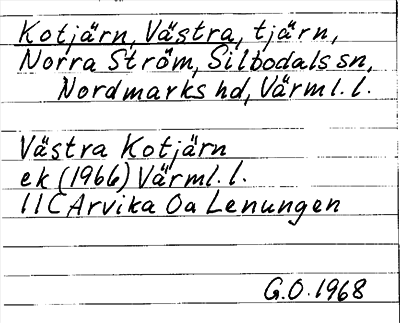 Kotjärn, Västra, tjärn,
Norra Ström, Silbodals sn,
Nordmarks hd, Värml. l.
Västra Kotjärn
ek (1966) Värml. l.
11C Arvika Oa Lenungen
G.O. 1968